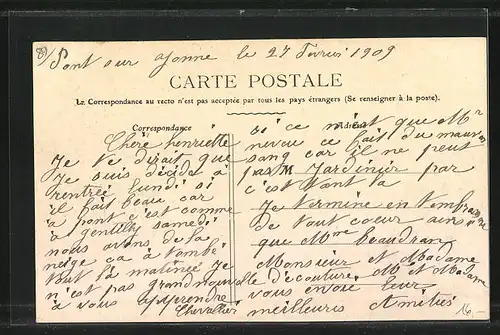 Pont sur Yonne le 27 Février 1909
CARTE POSTALE
Le Correspondance au recto n'est pas acceptée par tous les pays étrangers (Se renseigner à la poste).
Correspondance
Chère henriette
Je te dirait que
Je suis décidé à
rentrée lundi si
il fait beau car
à pont c'est comme
à gentilly samedi
nous avons de la
neige ça à tombé
tout la matinée Je
n'est pas grand nouvelle
à vous apprendre
Chevalier
Adresse
si ce n'est que Mr
neveu ce fait du mauvais
sang car il ne peut
pas Jardinier par
c'est tant la
Je termine en
de tout coeur ainsi
que Mme beaudran
Monsieur et Madame
M et Madame
vous envoie leur
meilleures Amitiés
16.-